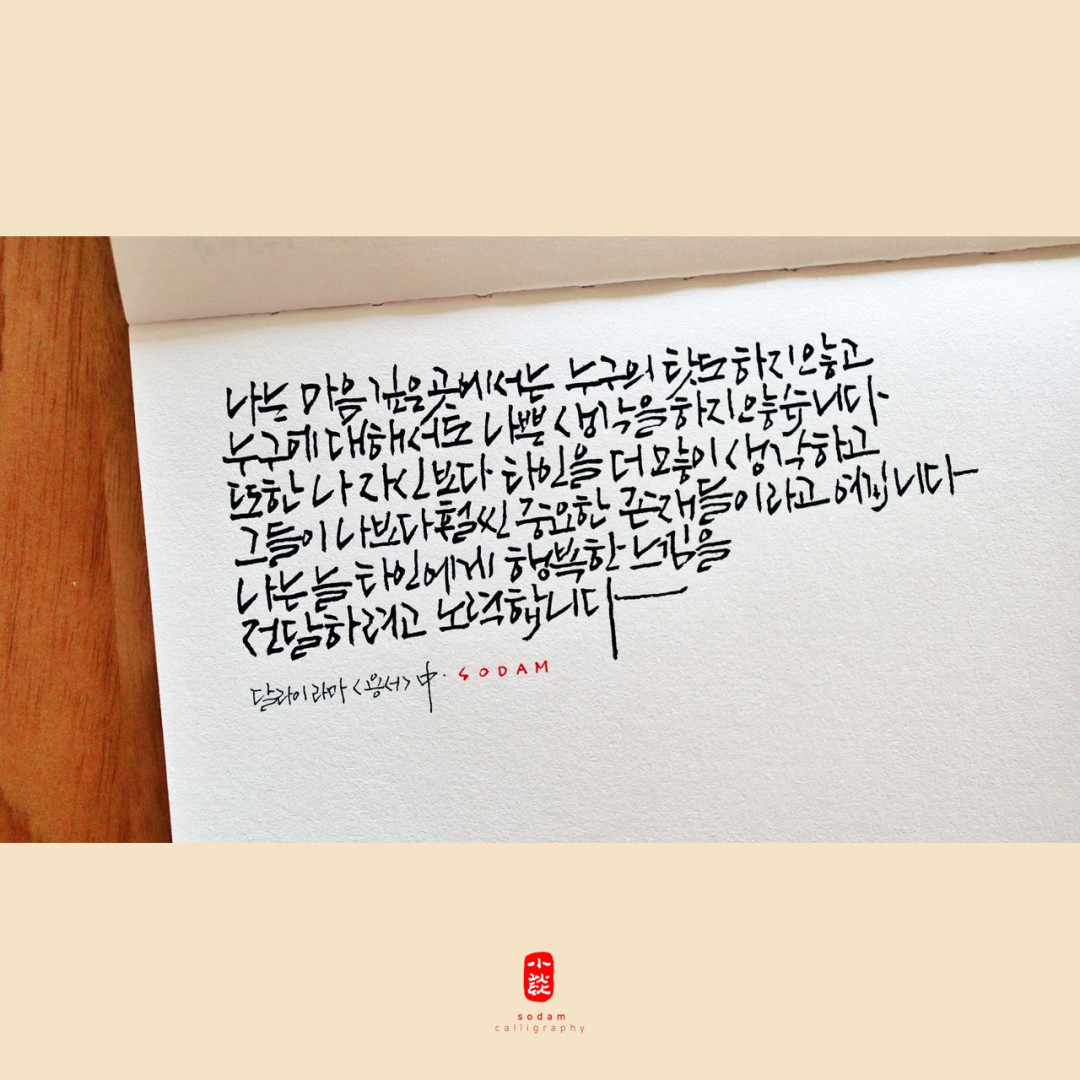 나는 마음 깊은 곳에서는 누구의 탓도 하지 않고
누구에 대해서도 나쁜 생각을 하지 않습니다.
또한 나 자신보다 타인을 더 많이 생각하고
그들이 나보다 훨씬 중요한 존재들이라고 여깁니다
나는 늘 타인에게 행복한 느낌을
전달하려고 노력합니다
달라이라마 <용서> 中. SODAM
小談
sodam
calligraphy